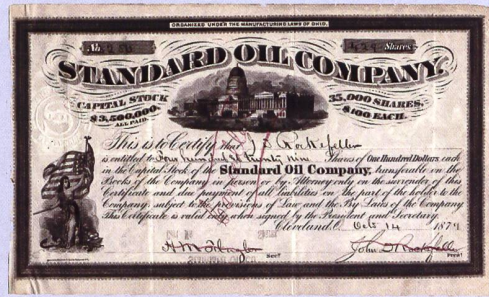 ORGANIZED UNDER THE MANUFACTURING LAWS OF OHIO.
No
Shares.
STANDARD OIL COMPANY.
CAPITAL STOCK
$3,500,000.
ALL PAID.
35,000 SHARES,
$100 EACH.
This is to Certify that J D Rockefeller
is entitled to Four hundred & twenty nine Shares of One Hundred Dollars each
in the Capital Stock of the Standard Oil Company, transferable on the
Books of the Company in person or by Attorney only on the surrender of this
Certificate and due payment of all liabilities on the part of the holder to the
Company, subject to the provisions of Law and the By Laws of the Company.
This Certificate is valid only when signed by the President and Secretary.
Cleveland, O. Oct 14 187
H M Flagler Sec'y
John D Rockefeller Pres't